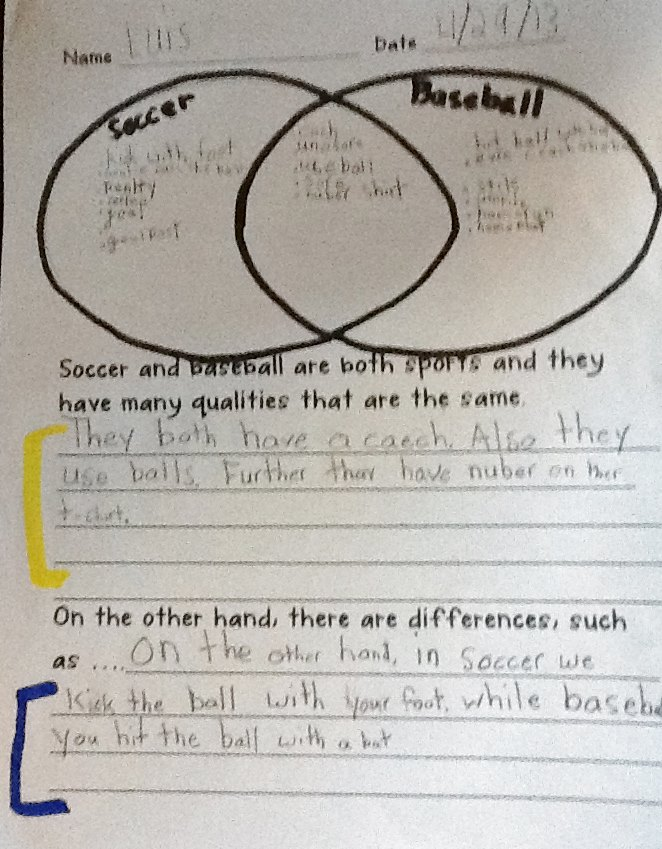 Name Luis Date 4/29/13
Soccer Baseball
kick with foot
penlty
goal
goal post
coach
use ball
shirt
hit ball with bat
Soccer and baseball are both sports and they
have many qualities that are the same.
They both have a caech. Also they
use balls. Further ther have nuber on ther
t-shirt.
On the other hand, there are differences, such
as ....On the other hand, in soccer we
Kick the ball with your foot, while baseba
you hit the ball with a bat